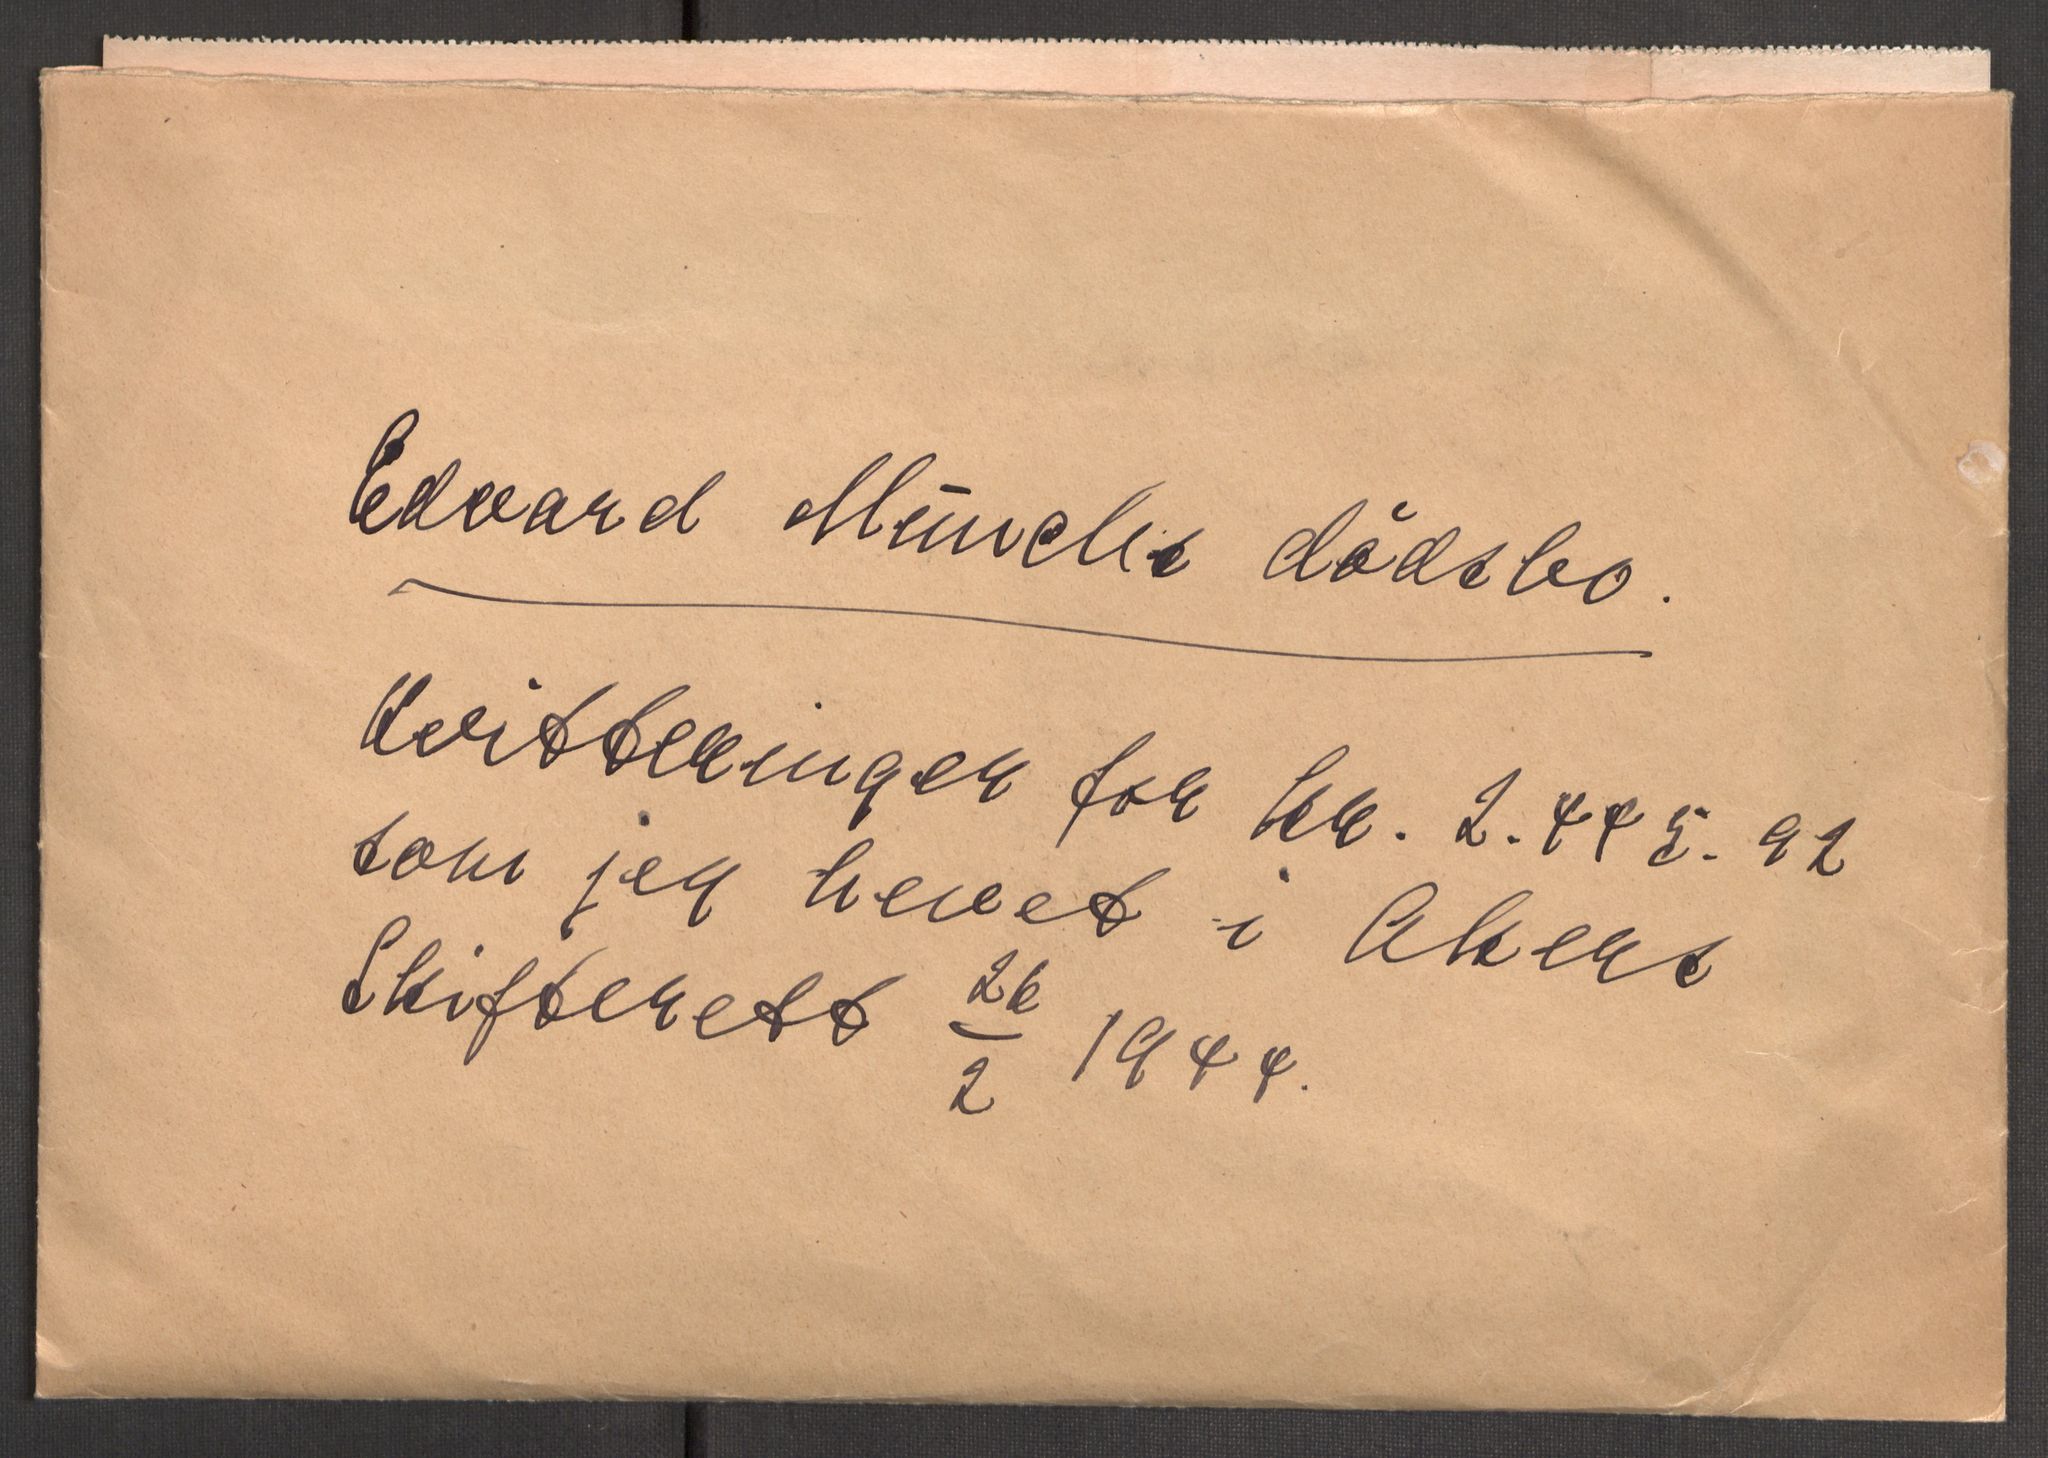 Edvard Munchs dödsbo.
Kvitteringer for kr. 2.445.92
som jeg hevet i Akers
Skifterett 26/2 1944.